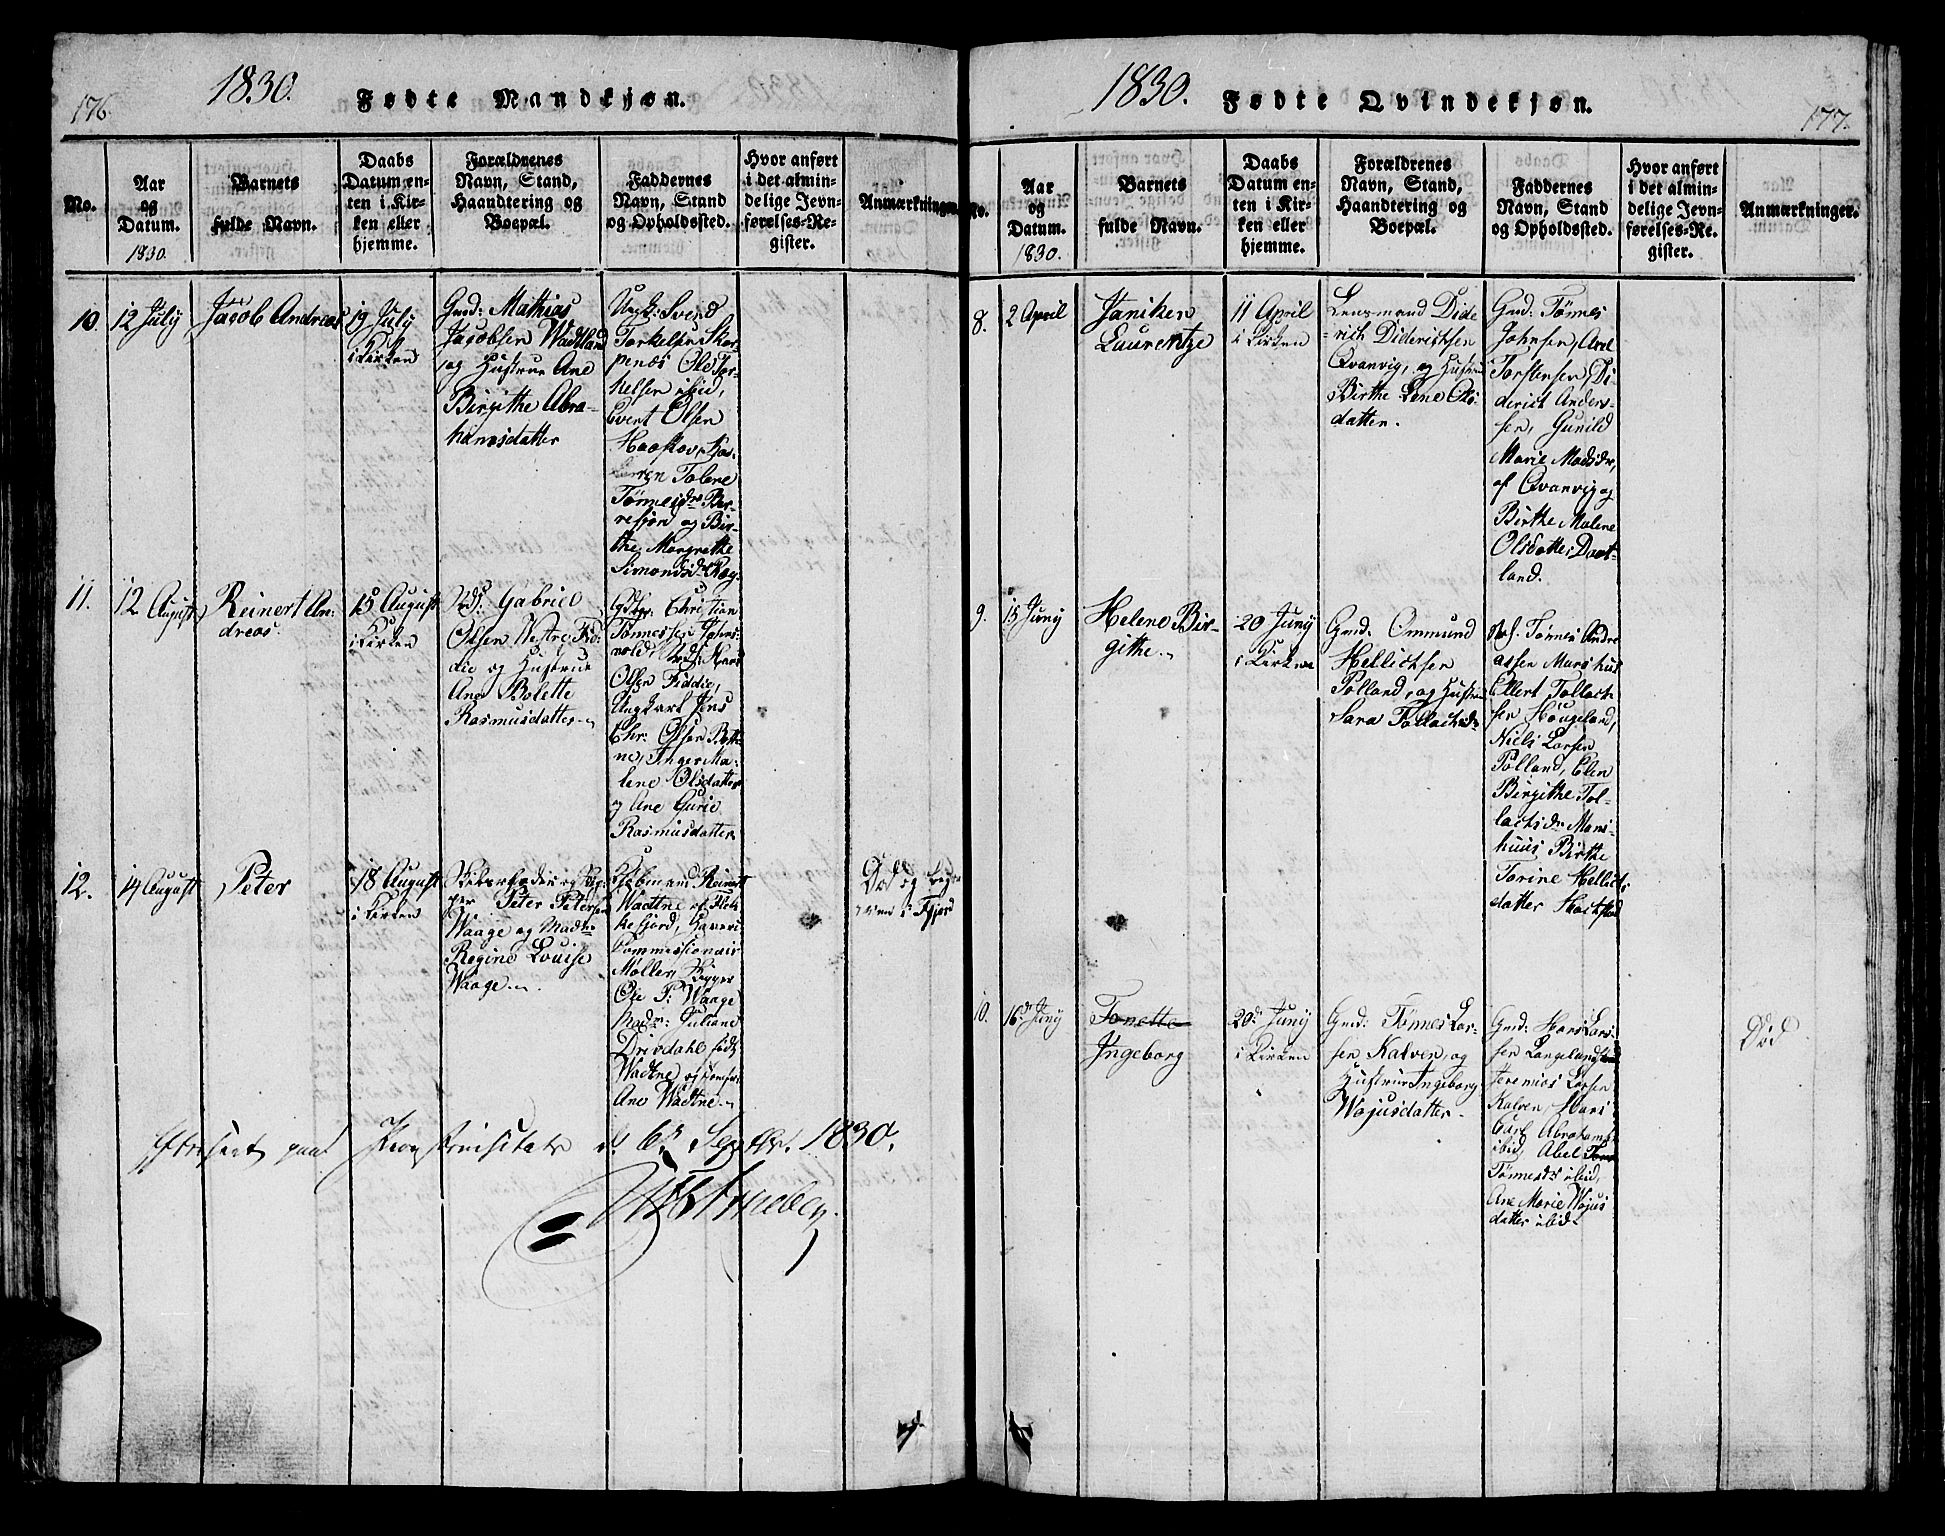 176.
1830.
Fødte Mandkjøn.
No.
Aar
og
Datum.
1830.
Barnets
fulde Navn.
Daabs
Datum en-
ten i Kir-
ken eller
hjemme.
Forældrenes
Navn, Stand,
Haandtering og
Boepæl.
Faddernes
Navn, Stand
og Opholdssted.
Hvor anført
i det almin-
delige Jevn-
førelses-Re-
gister.
Anmærkninger.
10.
12 July
Jacob Andreas
19 July
i Kirken
Gmd: Mathias
Jacobsen Wadland
og Hustrue Ane
Birgithe Abra-
hamsdatter
Ungk: Svend
Torkelsen Skar-
penæs Ole Tor-
kelsen ibid,
Evert Olsen
Tolene
Tønnesdr
og Bir-
the Margrethe
Simonsdr
11.
12 August
Reinert An-
dreas.
15 August
i Kirken
Gabriel
Olsen Vestre Fid-
die og Hustrue
Ane Bolette
Rasmusdatter
Christian
Tønnessen
Olsen Fiddie,
Ungkarl Jens
Chr: Olsen
Inger Ma-
lene Olsdatter
og Ane Gurie
Rasmusdatter
12.
14 August
Peter
18 August
i Kirken
Peter Petersen
Waage og Madme
Regine Louise
Waage.
Kiøbmand Reinert
Wadtne af Flek-
kefjord,
Commissionair
Møller, Skipper
Ole P: Waage
Madm: Juliane
Drivdahl født
Wadtne, og
Ane Wadtne
Død og
i Fjord
Efterseet paa Provstevisitats d. 6. Septbr. 1830.
177.
1830.
Fødte Qvindekjøn.
No.
Aar
og
Datum.
1830.
Barnets
fulde Navn.
Daabs
Datum en-
ten i Kir-
ken eller
hjemme.
Forældrenes
Navn, Stand,
Haandtering og
Boepæl.
Faddernes
Navn, Stand
og Opholdssted.
Hvor anført
i det almin-
delige Jevn-
førelses-Re-
gister.
Anmærkninger.
8.
2 April
Janiken
Laurentze
11 April
i Kirken
Lensmand Dide-
rich Diderichsen
Qvanvig, og Hustrue
Birthe Lene Ols-
datter.
Gmd: Tønnes
Johnsen, Arel
Torstensen, Di-
derich Anders-
sen, Gunild
Marie Madsdr,
af Qvanvig og
Birthe Malene
Olsdatter Daat-
land.
9.
15 Juny
Helene Bir-
githe
20 Juny
i Kirken
Gmd: Ommund
Hellichsen
Polland, og Hustrue
Sara Tollachsdr
Tønnes Andre-
assen
Ellert Tollach-
sen Hougeland,
Niels Larsen
Polland, Elen
Birgithe Tol-
lachsdr
Birthe
Torine Hellichs-
datter
10.
16 Juny
Tonette
Ingeborg
20 Juny
i Kirken
Gmd: Tønnes Lar-
sen Kalven, og
Hustrue Ingeborg
Wajusdatter
Gmd: Hans Lars-
sen
Jeremias Larsen
Kalven, Hans
Carl Abrahams
ibid, Abel
Tønnesdr ibid,
Ane Marie Wajus
datter ibid.
Død